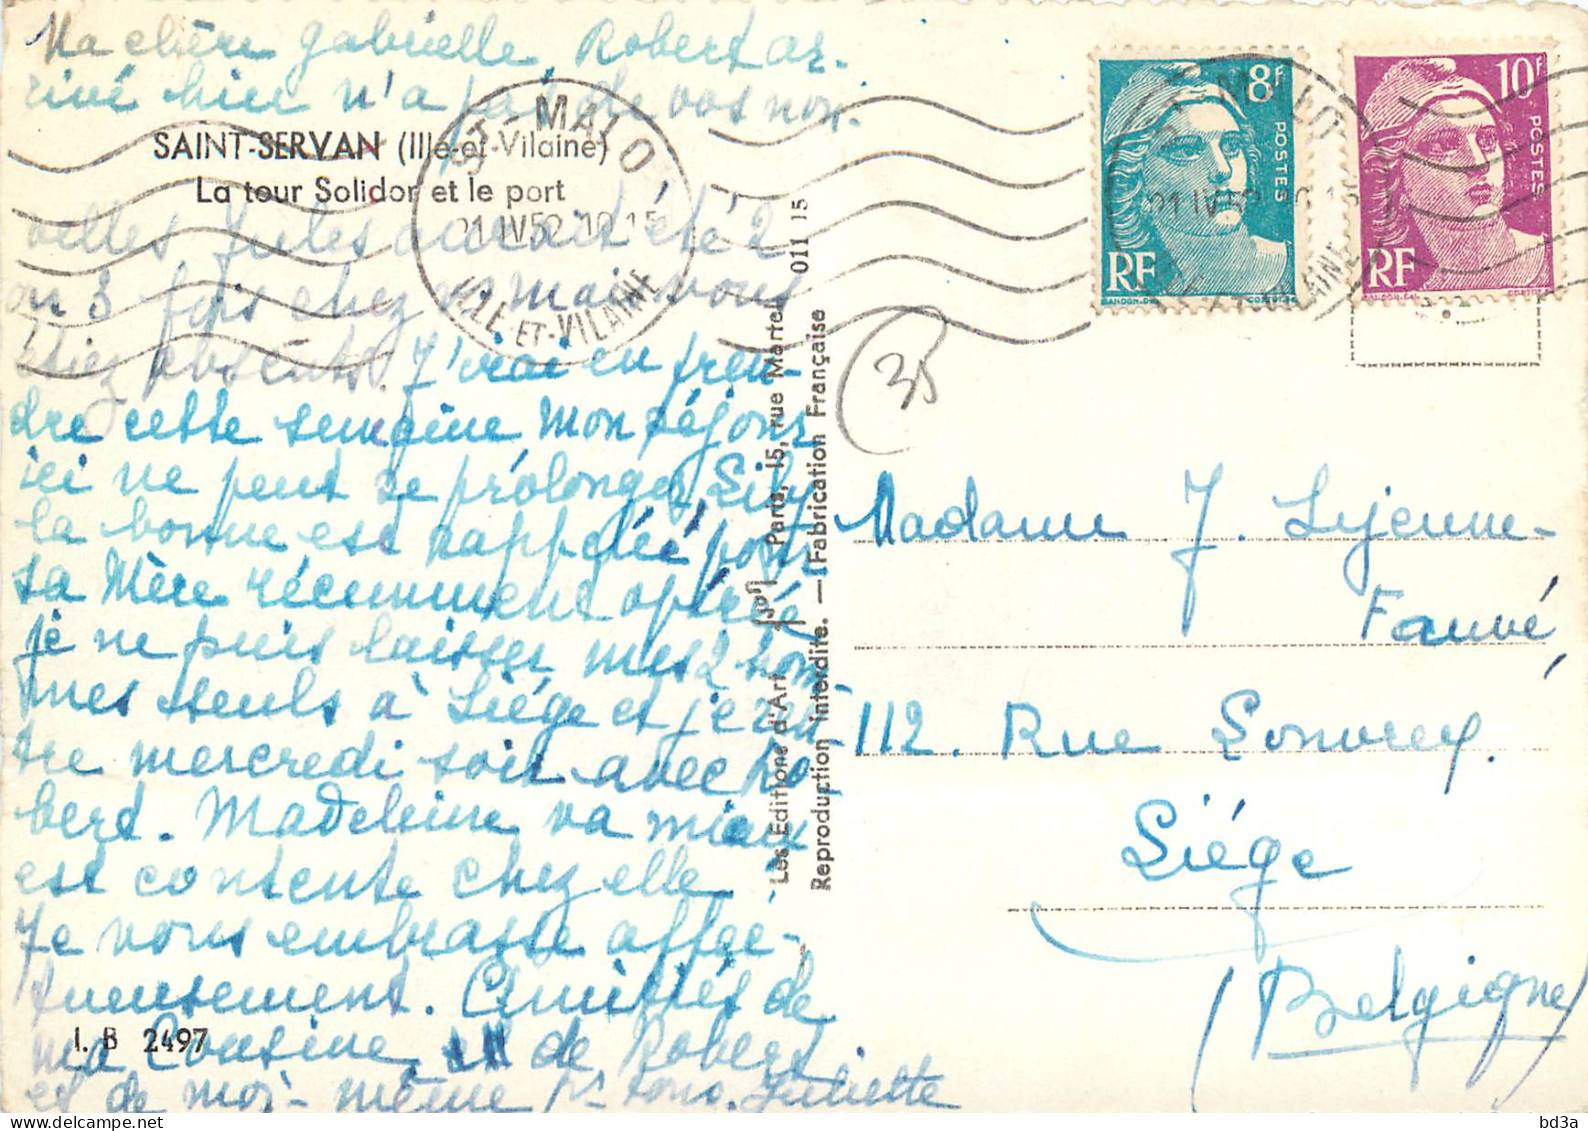 Ma chère Gabrielle, Robert ar-
rivé hier n'a pas de vos nou-
SAINT-SERVAN (Ille-et-Vilaine)
La tour Solidor et le port
velles Jules aurait été 2
ou 3 fois chez vs mais vous
étiez absents. J'irai en pren-
dre cette semaine mon séjour
ici ne peut se prolonger, Lily
la bonne est rappelée pour
sa Mère récemment opérée
je ne puis laisser mes 2 hom-
mes seuls à Liége et je ren-
tre mercredi soir avec Ro-
bert. Madeleine va mieux
est contente chez elle
Je vous embrasse affec-
tueusement. Amitiés de
I. B 2497
ma Cousine, de Robert
et de moi-même pr tous. Juliette
ST-MALO
21 IV 52 10.15
ILLE-ET-VILAINE
Les Editions d'Art "Yvon" Paris, 15, rue Martel 011 15
Reproduction interdite. — Fabrication Française
35
8F
POSTES
RF
GANDON.DEL
10F
POSTES
RF
GANDON.DEL
Madame J. Lejeune-
Fauvé
112. Rue Louvrex.
Liége
(Belgique)
bd3a